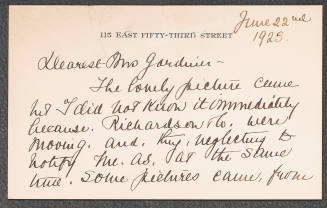 115 EAST FIFTY-THIRD STREET
June 22nd
1923.
Dearest Mrs Gardner-
The lovely picture came
but I did not know it immediately
because. Richardson Co. were
moving. and, they, neglecting to
notify me. as, at the same
time. Some pictures came, from